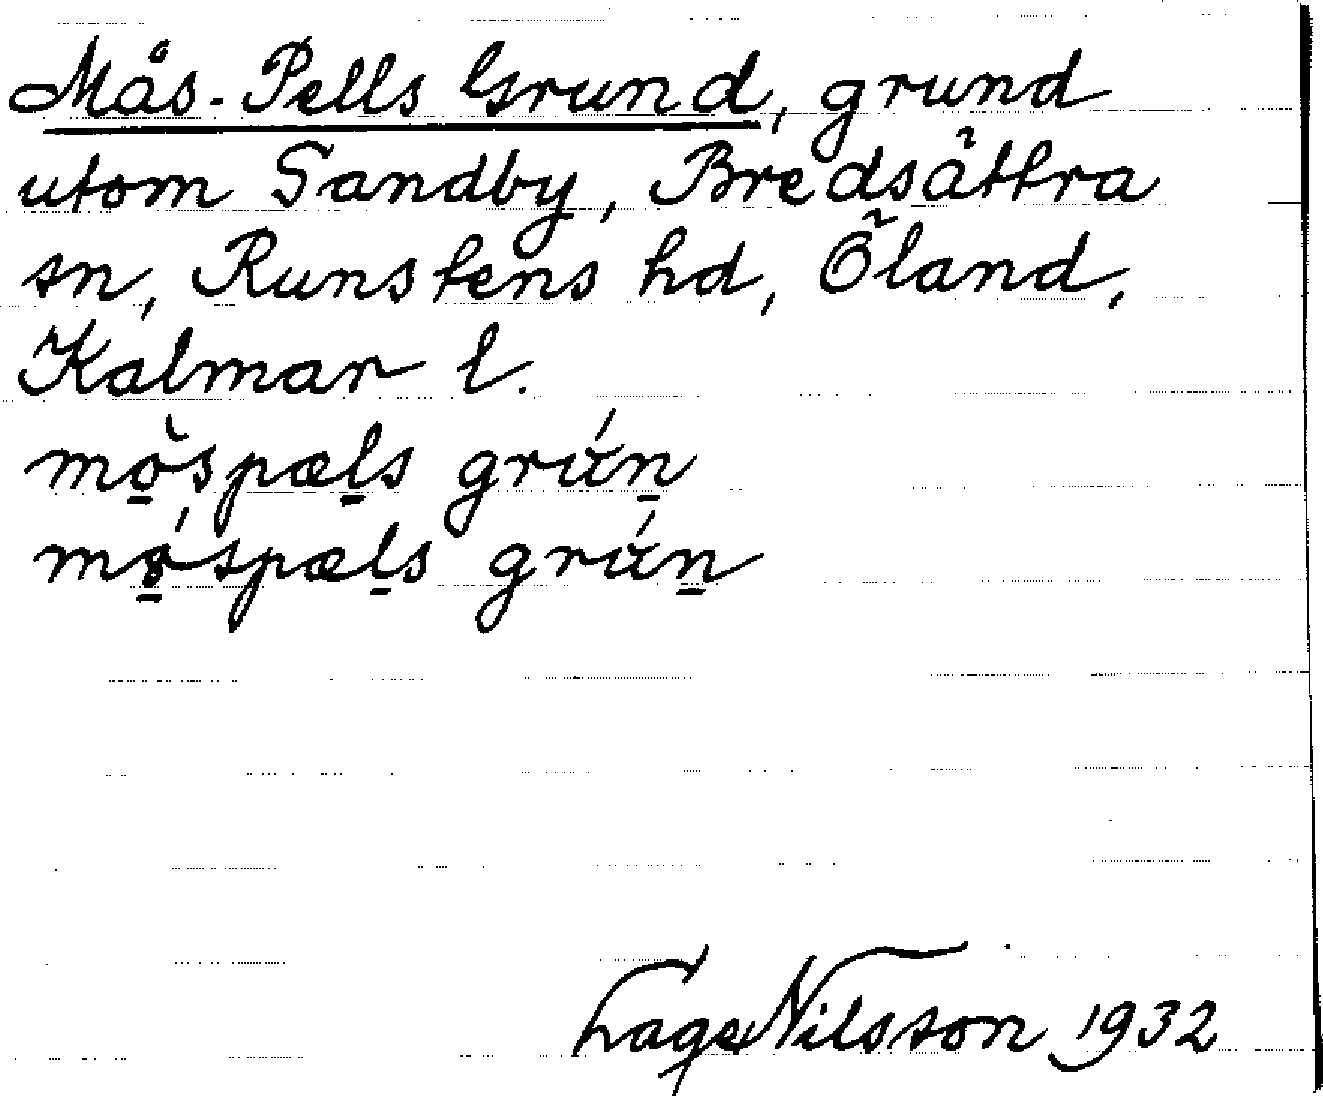 Mås-Pells Grund, grund
utom Sandby, Bredsättra
sn, Runstens hd, Öland,
Kalmar l.
mò̱spæl̲s grɯ́n̲
mó̱spæl̲s grɯ́n̲
Tage Nilsson 1932